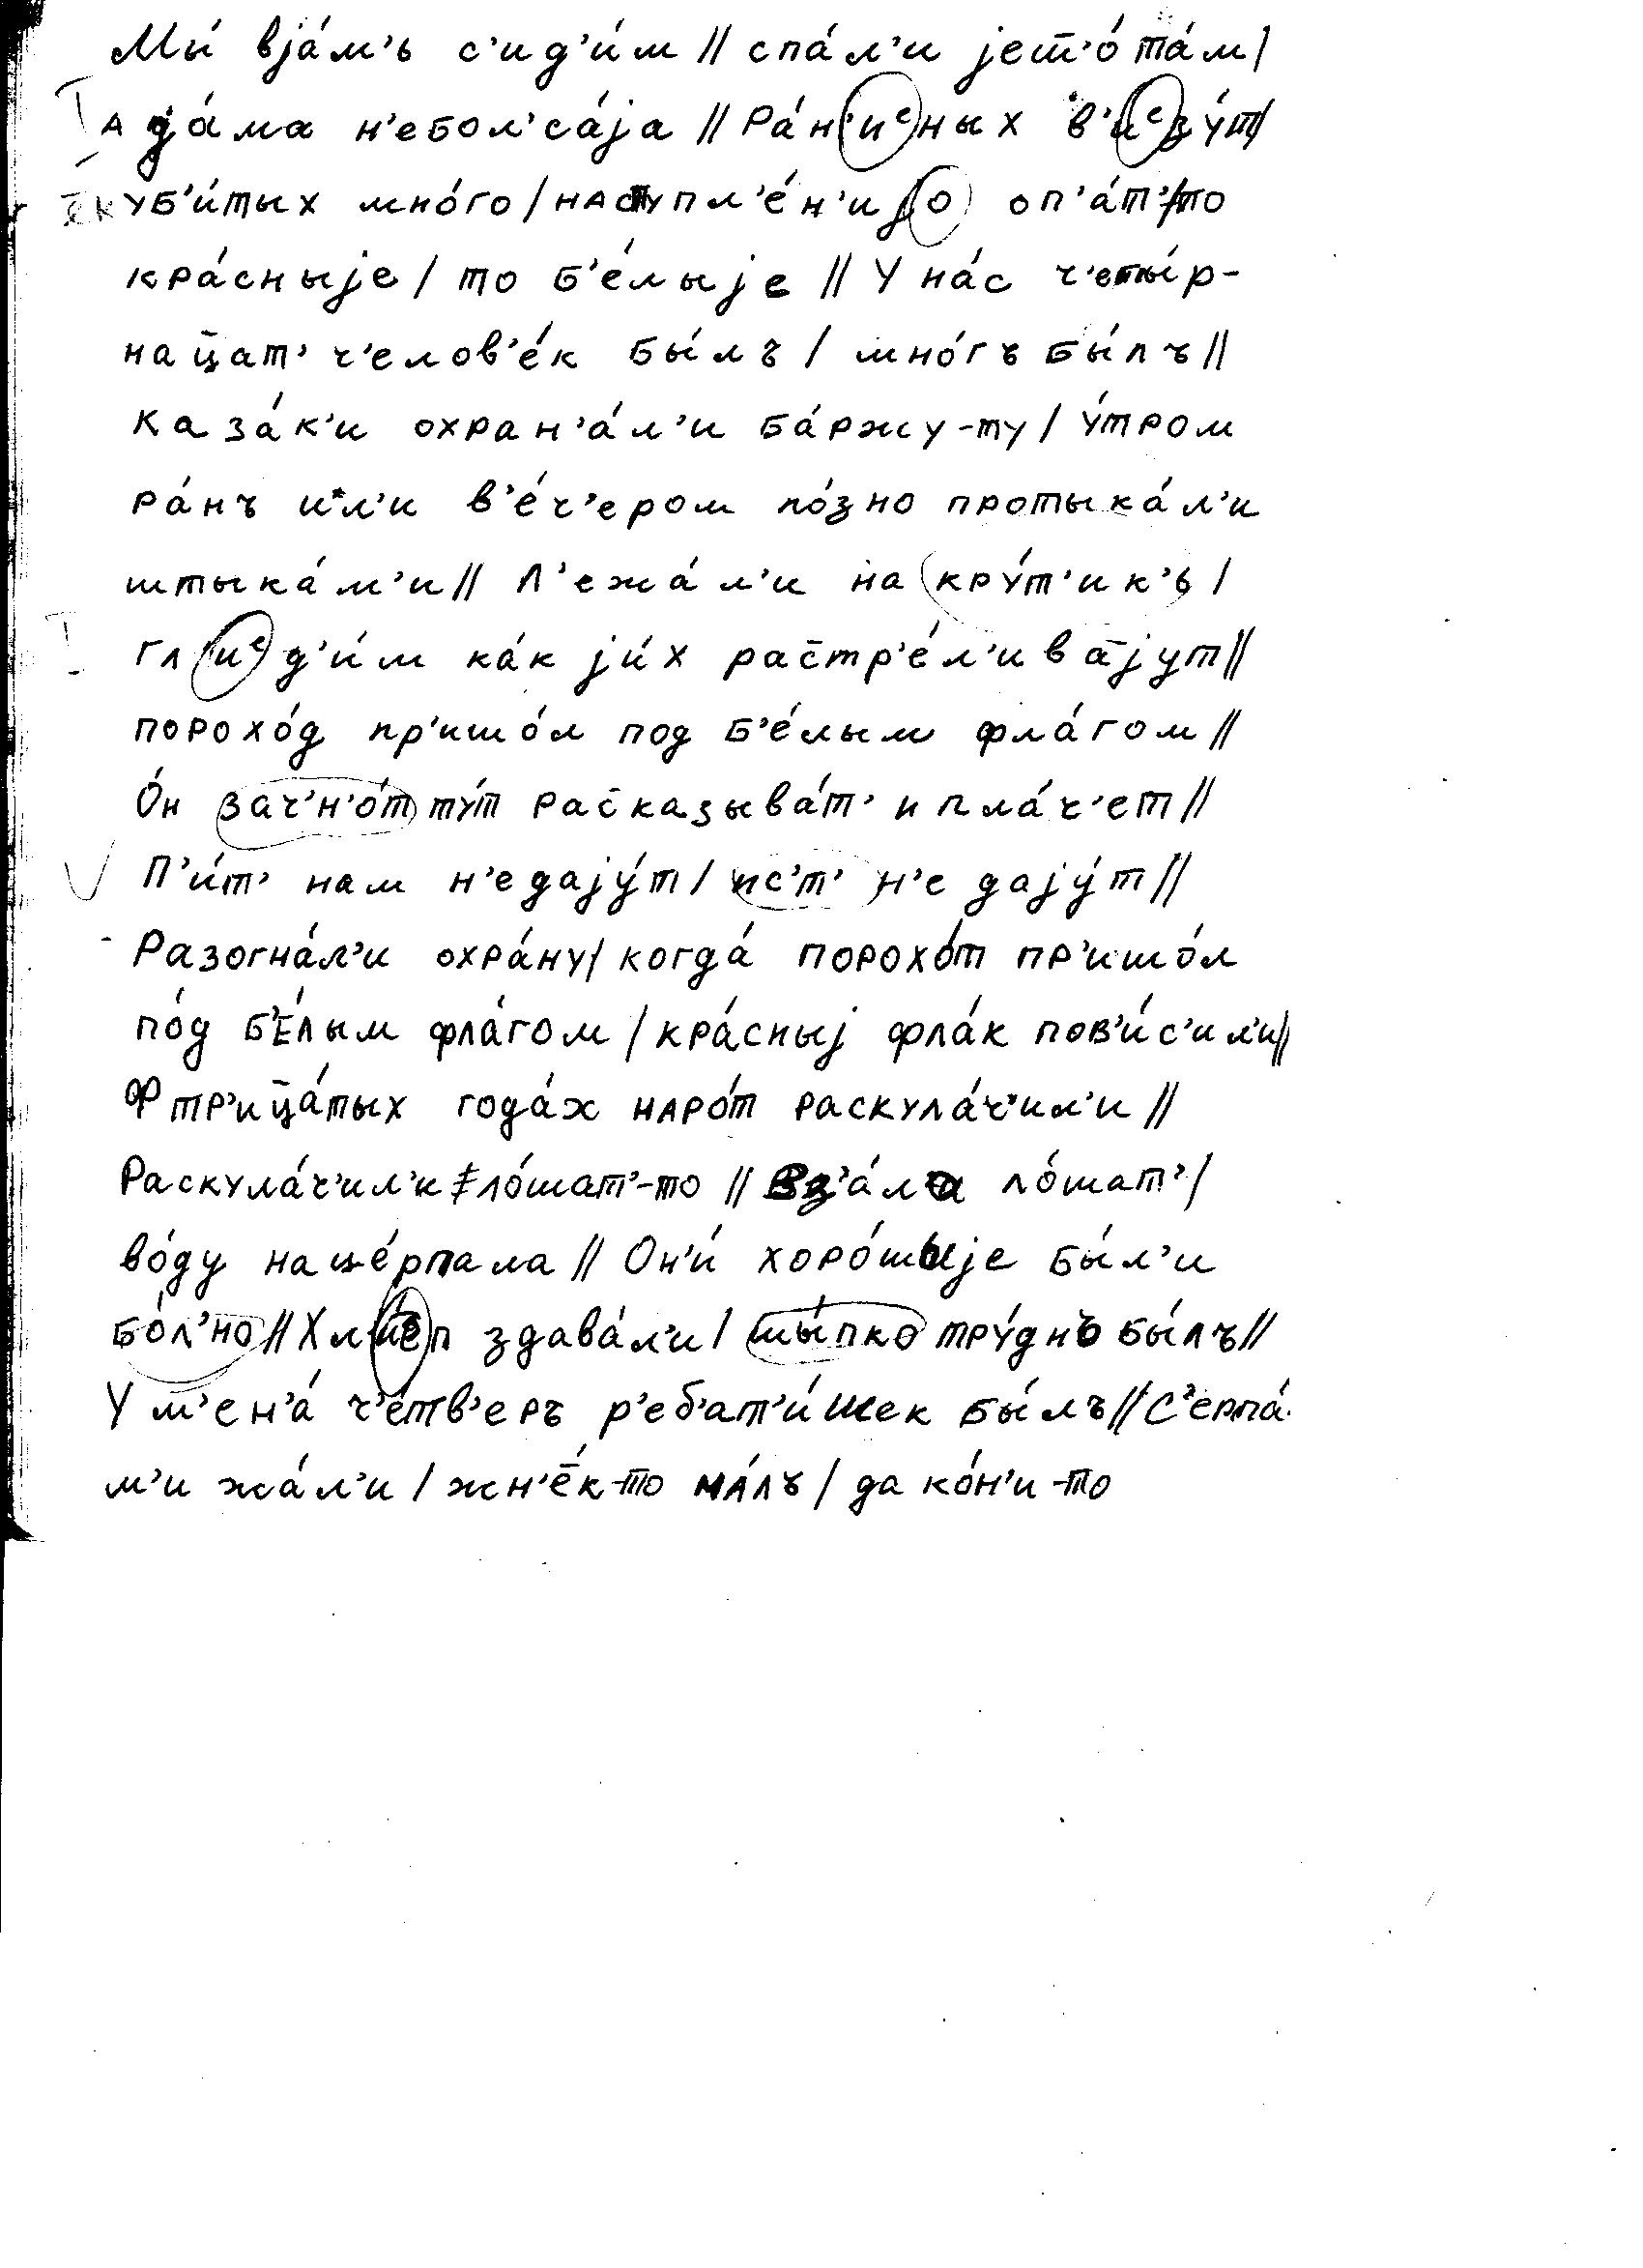 Мы́ вjа́м'ь с'ид'и́м // спа́л'и jет̄'о́ та́м /
А да́ма н'ебол'са́jа // Ра́н'иᵉных в'иᵉзу́т /
уб'и́тых мно́го / наступл'е́н'иjо оп'а́т' / то
кра́сныjе / то б'е́лыjе // У на́с ч'еты́р-
нац̄ат' ч'елов'е́к бы́лъ / мно́гъ бы́лъ //
Каза́к'и охран'а́л'и ба́ржу-ту / у́тром
ра́нъ ил'и в'е́ч'ером по́зно протыка́л'и
штыка́м'и // Л'ежа́л'и на кру́т'ик'ь /
гл'иᵉд'и́м ка́к jи́х рас̄тр'е́л'ива̄jут //
порохо́д пр'ишо́л под б'е́лым фла́гом //
О́н зач'н'о́т ту́т рас̄казыва́т' и пла́ч'ет //
П'и́т' нам н'е даjу́т / ис'т' н'е даjу́т //
Разогна́л'и охра́ну / когда́ порохо́т пр'ишо́л
по́д б'е́лым фла́гом / кра́сныj фла́к пов'и́с'ил'и //
Ф тр'иц̄а́тых года́х наро́т раскула́ч'ил'и //
Раскула́ч'ил'и ло́шат'-то // Вз'а́ла ло́шат' /
во́ду наце́рпала // Он'и́ хоро́шыjе бы́л'и
бо́л'но // Хл'и́еп здава́л'и / шы́пко тру́днъ бы́лъ //
У м'ен'а́ ч'е́тв'еръ р'еб'ат'и́шек бы́лъ // С'ерпа́-
м'и жа́л'и / жн'е́к-то ма́лъ / да ко́н'и-то